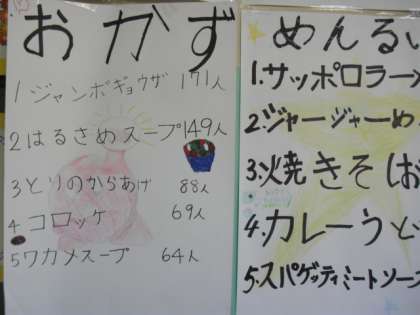 おかず
1ジャンボギョウザ 171人
2はるさめスープ 149人
3とりのからあげ 88人
4コロッケ 69人
5ワカメスープ 64人
めんるい
1.サッポロラー
2.ジャージャーめ
3.焼きそば
4.カレーうど
5.スパゲッティミートソー